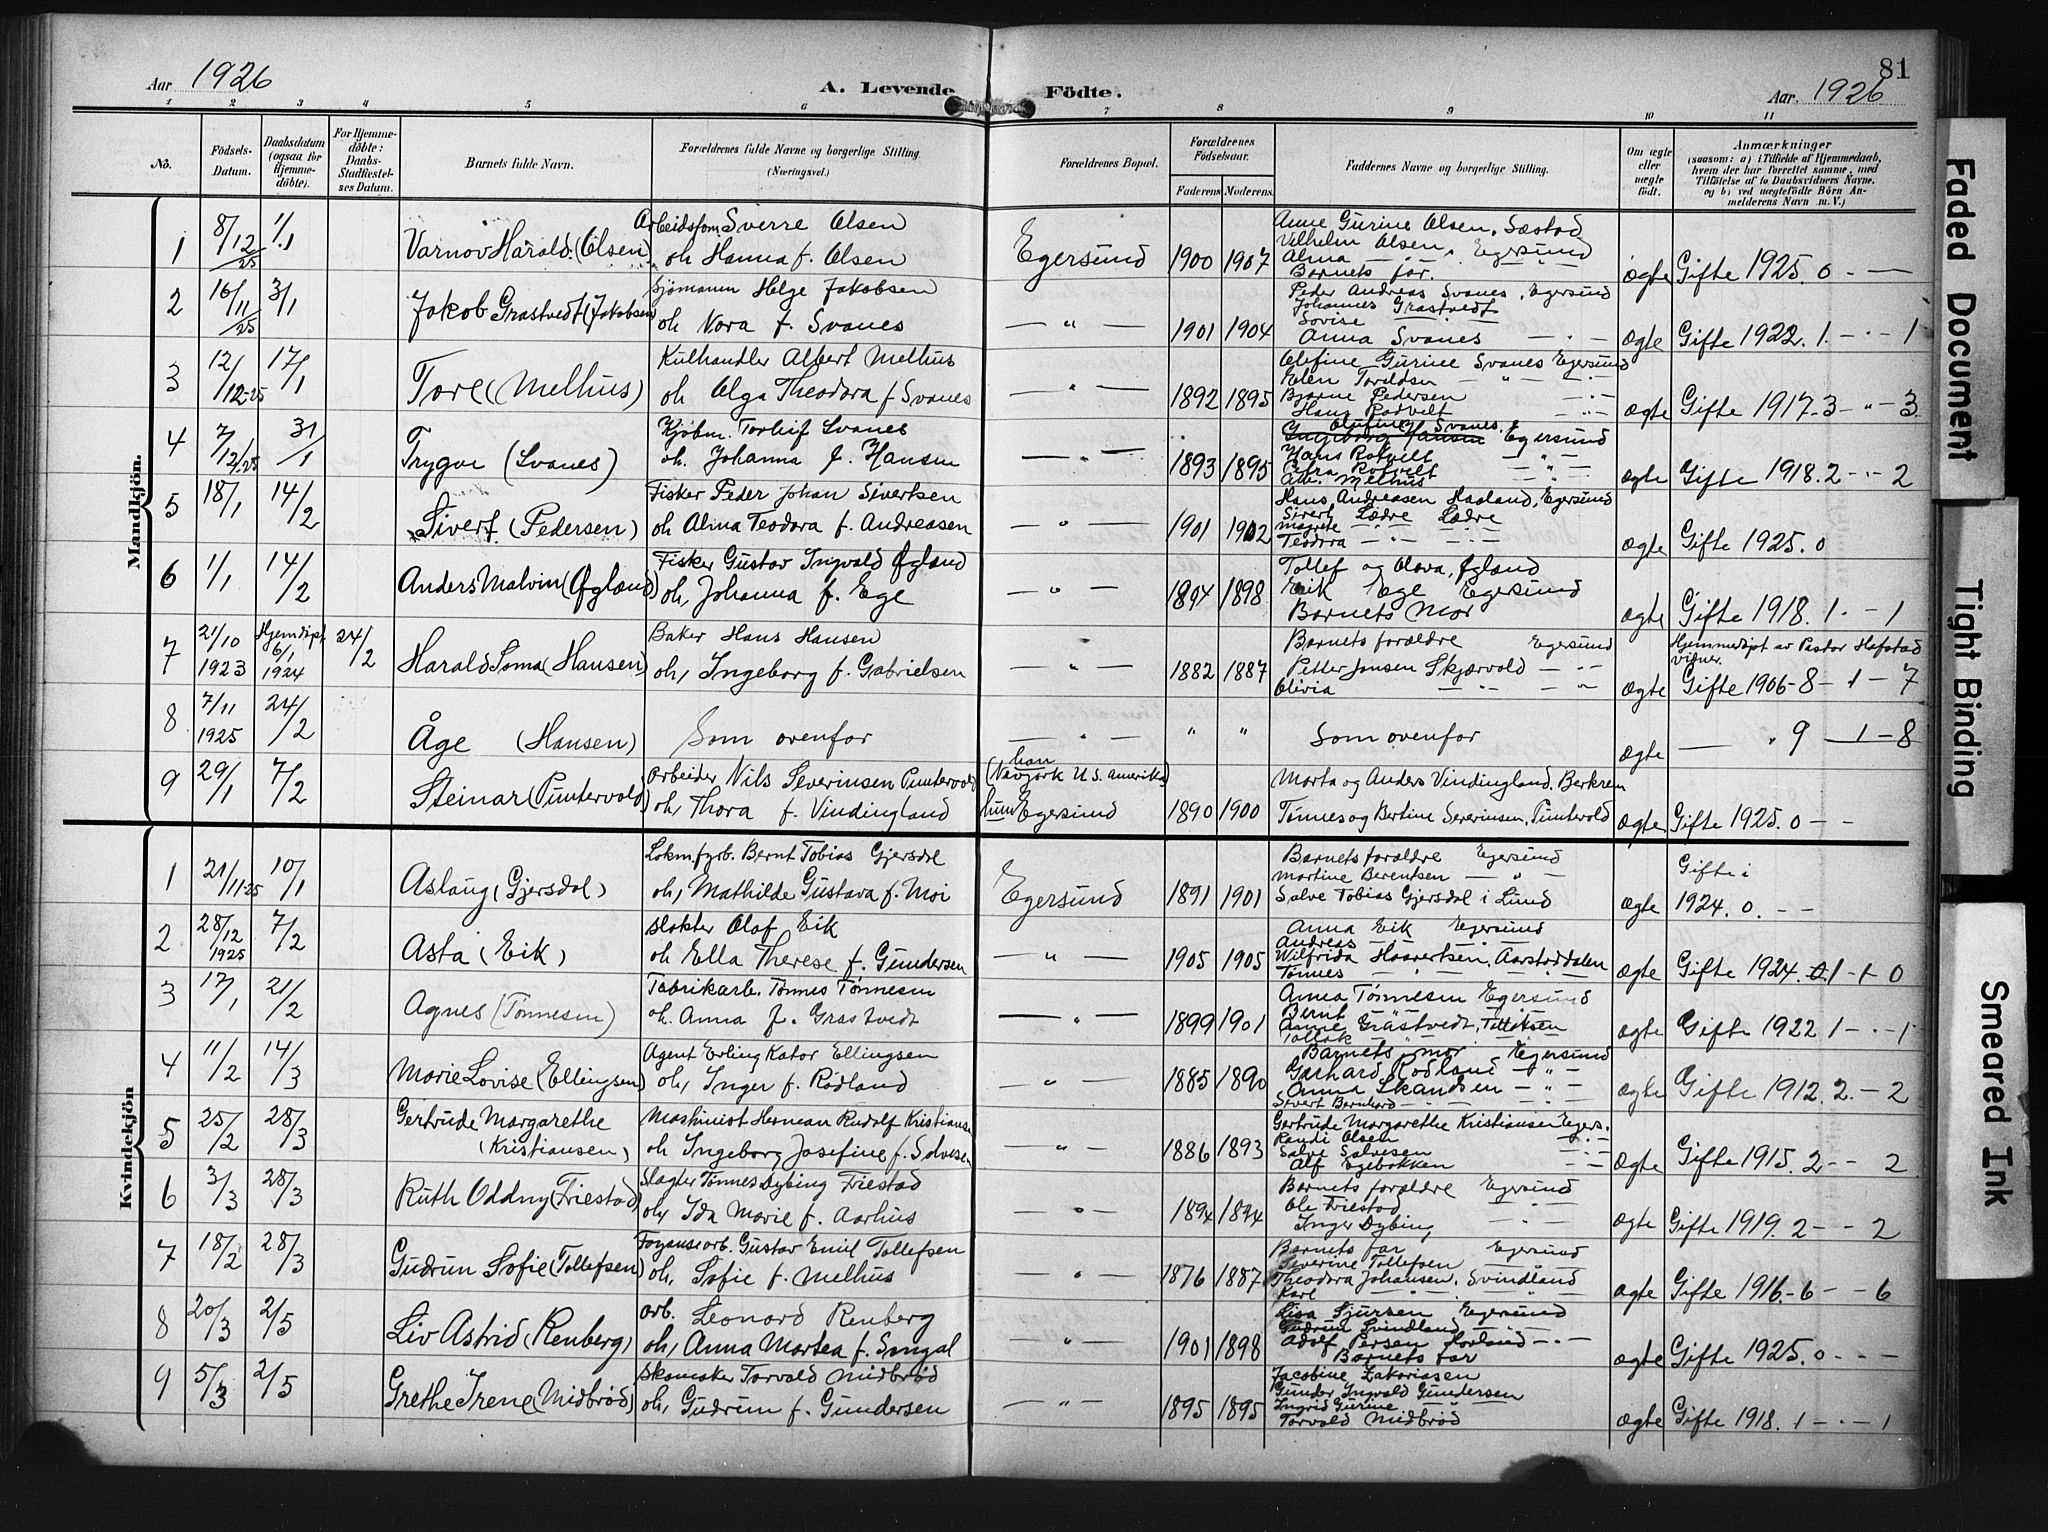 81
Aar 1926
A. Levende Födte.
Aar. 1926
1 2 3 4 5 6 7 8 9 10 11
No.
Födsels-Datum.
Daabsdatum (ogsaa for Hjemmedöbte).
For Hjemmedöbte: Daabs-Stadfæstelses Datum.
Barnets fulde Navn.
Forældrenes fulde Navne og borgerlige Stilling.
(Næringsvei.)
Forældrenes Bopæl.
Forældrenes Födselsaar.
Faderens Moderens.
Faddernes Navne og borgerlige Stilling.
Om ægte eller uægte födt.
Anmærkninger
(saasom: a) i Tilfælde af Hjemmedaab,
hvem der har forrettet samme, med
Tilföielse af to Daabsvidners Navne,
og b) ved uægtefödte Börn Anmelderens Navn m. V.)
Mandkjön.
1 8/12 25 1/1 Varnov Harald (Olsen) Arbeidsfom. Sverre Olsen
oh Hanna f. Olsen
Egersund 1900 1907
Anne Gurine Olsen, Sæstad
Vilhelm Olsen, Egersund
Alma — " —
Barnets far.
ægte Gifte 1925. 0 — —
2 16/11 25 3/1 Jakob Grastvedt (Jakobsen) Sjømann Helge Jakobsen
oh Nora f. Svanes
— " — 1901 1904
Peder Andreas Svanes, Egersund
Johannes Grastvedt
Lovise — —
Anna Svanes — " —
ægte Gifte 1922. 1 — " — 1
3 12/12-25 17/1 Tore (Melhus) Kulhandler Albert Melhus
oh Olga Theodora f Svanes
— " — 1892 1895
Olefine Gurine Svanes Egersund
Elen Toreldsen — " —
Bjarne Pedersen — " —
Hans Rotvilt — " —
ægte Gifte 1917-3 — " — 3
4 7/12-25 31/1 Trygve (Svanes) Kjøbm. Torleif Svanes
oh. Johanna f. Hansen
— " — 1893 1895
Olufine Svanes.
Ingeborg Hansen Egersund
Hans Rotvilt — " —
Rotvilt — " —
Alb. Melhus
ægte Gifte 1918. 2 — " — 2
5 18/1 14/2 Sivert (Pedersen) Fisker Peder Johan Sivertsen
oh Alma Teodora f. Andreasen
— " — 1901 1902
Hans Andreasen Haaland, Egersund
Sivert Lædre Lædre
Magrete — " —
Teodora — " — — " —
ægte Gifte 1925. 0
6 1/1 14/2 Anders Malvin (Øgland) Fisker Gustav Ingvald Øgland
oh, Johanna f. Ege
— " — 1894 1898
Tollef og Olava, Øgland
Eik Ege Egersund
Barnets Mor
ægte Gifte 1918. 1 — " — 1
7 21/10 1923 Hjemdøpt 6/1 1924 24/2 Harald Soma (Hansen) Baker Hans Hansen
oh, Ingeborg f. Gabrielsen
— " — 1882 1887
Barnets forældre Egersund
Petter Jonsen Skjærvold — " —
Olivia — " — — " —
ægte Hjemmedøpt av Pastor Hofstad
Gifte 1906-8 — 1 — 7
8 7/11 1925 24/2 Åge (Hansen) Som ovenfor
— " — " " Som ovenfor
ægte — " 9 — 1 — 8
9 29/1 7/2 Steinar (Puntervold) Arbeider Nils Severinsen Puntervold
oh, Thora f. Vindingland
han (Navjork U S. Amerika)
hun Egersund 1890 1900
Marta og Anders Vindingland. Berkrem
Tønnes og Bertine Severinsen, Puntervold
ægte Gifte 1925. 0 — —
Kvindekjön
1 21/11-25 10/1 Aslaug (Gjersdal) Lokm.fyrb. Bernt Tobias Gjersdal
oh, Mathilde Gustava f. Moi
Egersund 1891 1901
Barnets forældre Egersund
Martine Berentsen — " —
Salve Tobias Gjersdal i Lund
ægte Gifte i 1924. 0. — —
2 28/12 1925 7/2 Asta (Eik) Slakter Olaf Eik
oh Ella Therese f. Gundersen
— " — 1905 1905
Anna Eik Egersund
Andreas — " —
Wilfrida Haavertsen, Aarstaddalen
Tønnes — " —
ægte Gifte 1924. 0 1 — 1 — 0
3 17/1 21/2 Agnes (Tønnesen) Fabrikarb. Tønnes Tønnesen
oh. Anna f. Grastvedt
— " — 1899 1901
Anna Tønnesen Egersund
Bernt — " —
Anne Grastvedt,
— " —
ægte Gifte 1922 1 — " — 1
4 11/2 14/3 Marie Lovise (Ellingsen) Agent Erling Kator Ellingsen
oh, Inger f. Rødland
— " — 1885 1890
Barnets mor Egersund
Gerhard Rødland — " —
Anna Skandsen — " —
Sivert Bernhard — " —
ægte Gifte 1912. 2. — 2
5 25/2 28/3 Gertrude Margarethe
(Kristiansen)
Maskinist Herman Rudolf Kristiansen
oh Ingeborg Josefine f. Salvesen
— " — 1886 1893
Gertrude Margarethe Kristiansen Egers.
Randi Olsen — " —
Salve Salvesen
Alf Egebakken — " —
ægte Gifte 1915. 2 — — 2
6 3/3 28/3 Ruth Oddny (Friestad) Slagter Tønnes Dybing Friestad
oh, Ida Marie f. Aarhus
— " — 1894 1894
Barnets forældre Egersund
Ole Friestad — " —
Inger Dybing — " —
ægte Gifte 1919. 2 — — 2
7 18/2 28/3 Gudrun Sofie (Tollefsen) Fayansearb. Gustav Emil Tollefsen
oh, Sofie f. Melhus
— " — 1876 1887
Barnets far Egersund
Severine Tollefsen — " —
Theodora Johansen, Svindland
Karl — " — — " —
ægte Gifte 1916-6 — — 6
8 20/3 2/5 Liv Astrid (Renberg) arb. Leonard Renberg
oh, Anna Martea f. Sengal
— " — 1901 1898
Lisa Sjursen Egersund
Gudrun Svindland — " —
Adolf Persen Hovland — " —
Barnets far
ægte Gifte 1925. 0 — " —
9 5/3 2/5 Grethe Irene (Midbrød) Skomaker Torvald Midbrød
oh, Gudrun f. Gundersen
— " — 1895 1895
Jacobine Zakariasen
Gunder Ingvald Gundersen
Ingrid Gurine — " —
Torvald Midbrød
ægte Gifte 1918. 1 — " — 1
Faded Document
Tight Binding
Smeared Ink